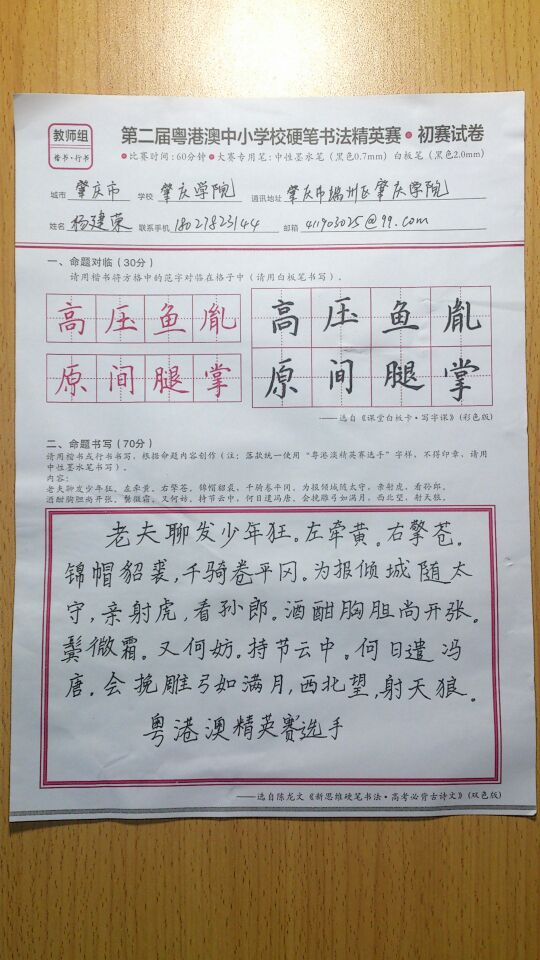 教师组
楷书·行书
第二届粤港澳中小学校硬笔书法精英赛·初赛试卷
●比赛时间:60分钟●大赛专用笔:中性墨水笔(黑色0.7mm)白板笔(黑色2.0mm)
城市 肇庆市 学校 肇庆学院 通讯地址 肇庆市端州区肇庆学院
姓名 杨建荣 联系手机 18027823144 邮箱 411903025@99.com
一、命题对临(30分)
请用楷书将方格中的范字对临在格子中(请用白板笔书写)。
高压鱼胤 高压鱼胤
原间腿掌 原间腿掌
——选自《课堂白板卡·写字课》(彩色版)
二、命题书写(70分)
请用楷书或行书书写,根据命题内容创作(注:落款统一使用“粤港澳精英赛选手”字样,不得印章,请用
中性墨水笔书写)。
内容:
老夫聊发少年狂,左牵黄,右擎苍,锦帽貂裘,千骑卷平冈,为报倾城随太守,亲射虎,看孙郎。
酒酣胸胆尚开张,鬓微霜,又何妨,持节云中,何日遣冯唐,会挽雕弓如满月,西北望,射天狼。
老夫聊发少年狂。左牵黄。右擎苍。
锦帽貂裘,千骑卷平冈。为报倾城随太
守,亲射虎,看孙郎。酒酣胸胆尚开张。
鬓微霜。又何妨。持节云中。何日遣冯
唐。会挽雕弓如满月,西北望,射天狼。
粤港澳精英赛选手
——选自陈龙文《新思维硬笔书法·高考必背古诗文》(双色版)